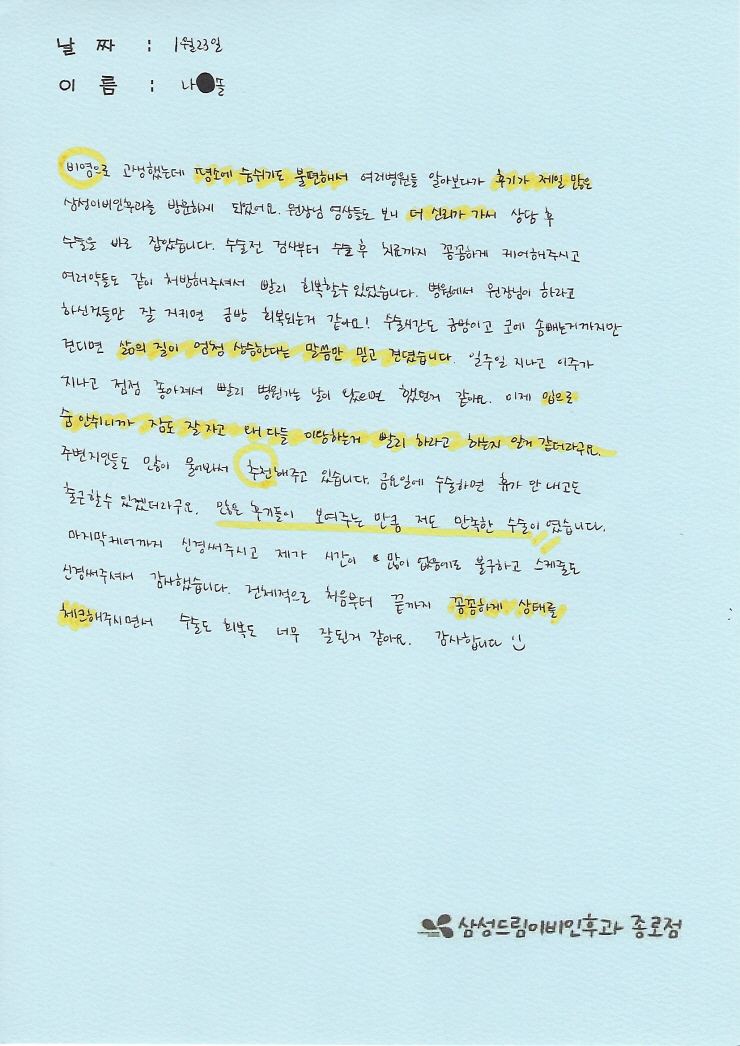 날 짜 : 1월23일
이 름 : 나 뜰
비염으로 고생했는데 평소에 숨쉬기도 불편해서 여러병원들 알아보다가 후기가 제일 많은
삼성이비인후과를 방문하게 되었어요. 원장님 영상들도 보니 더 신뢰가 가서 상담 후
수술을 바로 잡았습니다. 수술전 검사부터 수술 후 치료까지 꼼꼼하게 케어해주시고
여러약들도 같이 처방해주셔서 빨리 회복할수 있었습니다. 병원에서 원장님이 하라고
하신것들만 잘 지키면 금방 회복되는거 같아요! 수술시간도 금방이고 코에 솜빼는거까지만
견디면 삶의 질이 엄청 상승한다는 말씀만 믿고 견뎠습니다. 일주일 지나고 이주가
지나고 점점 좋아져서 빨리 병원가는 날이 왔으면 했던거 같아요. 이제 입으로
숨 안쉬니까 잠도 잘 자고 왜 다들 미루는거 빨리 하라고 하는지 알거 같더라구요.
주변지인들도 많이 물어봐서 추천해주고 있습니다. 금요일에 수술하면 휴가 안 내고도
출근할수 있겠더라구요. 많은 후기들이 보여주는 만큼 저도 만족한 수술이 였습니다.
마지막케어까지 신경써주시고 제가 시간이 많이 없음에도 불구하고 스케줄도
신경써주셔서 감사했습니다. 전체적으로 처음부터 끝까지 꼼꼼하게 상태를
체크해주시면서 수술도 회복도 너무 잘된거 같아요. 감사합니다
삼성드림이비인후과 종로점